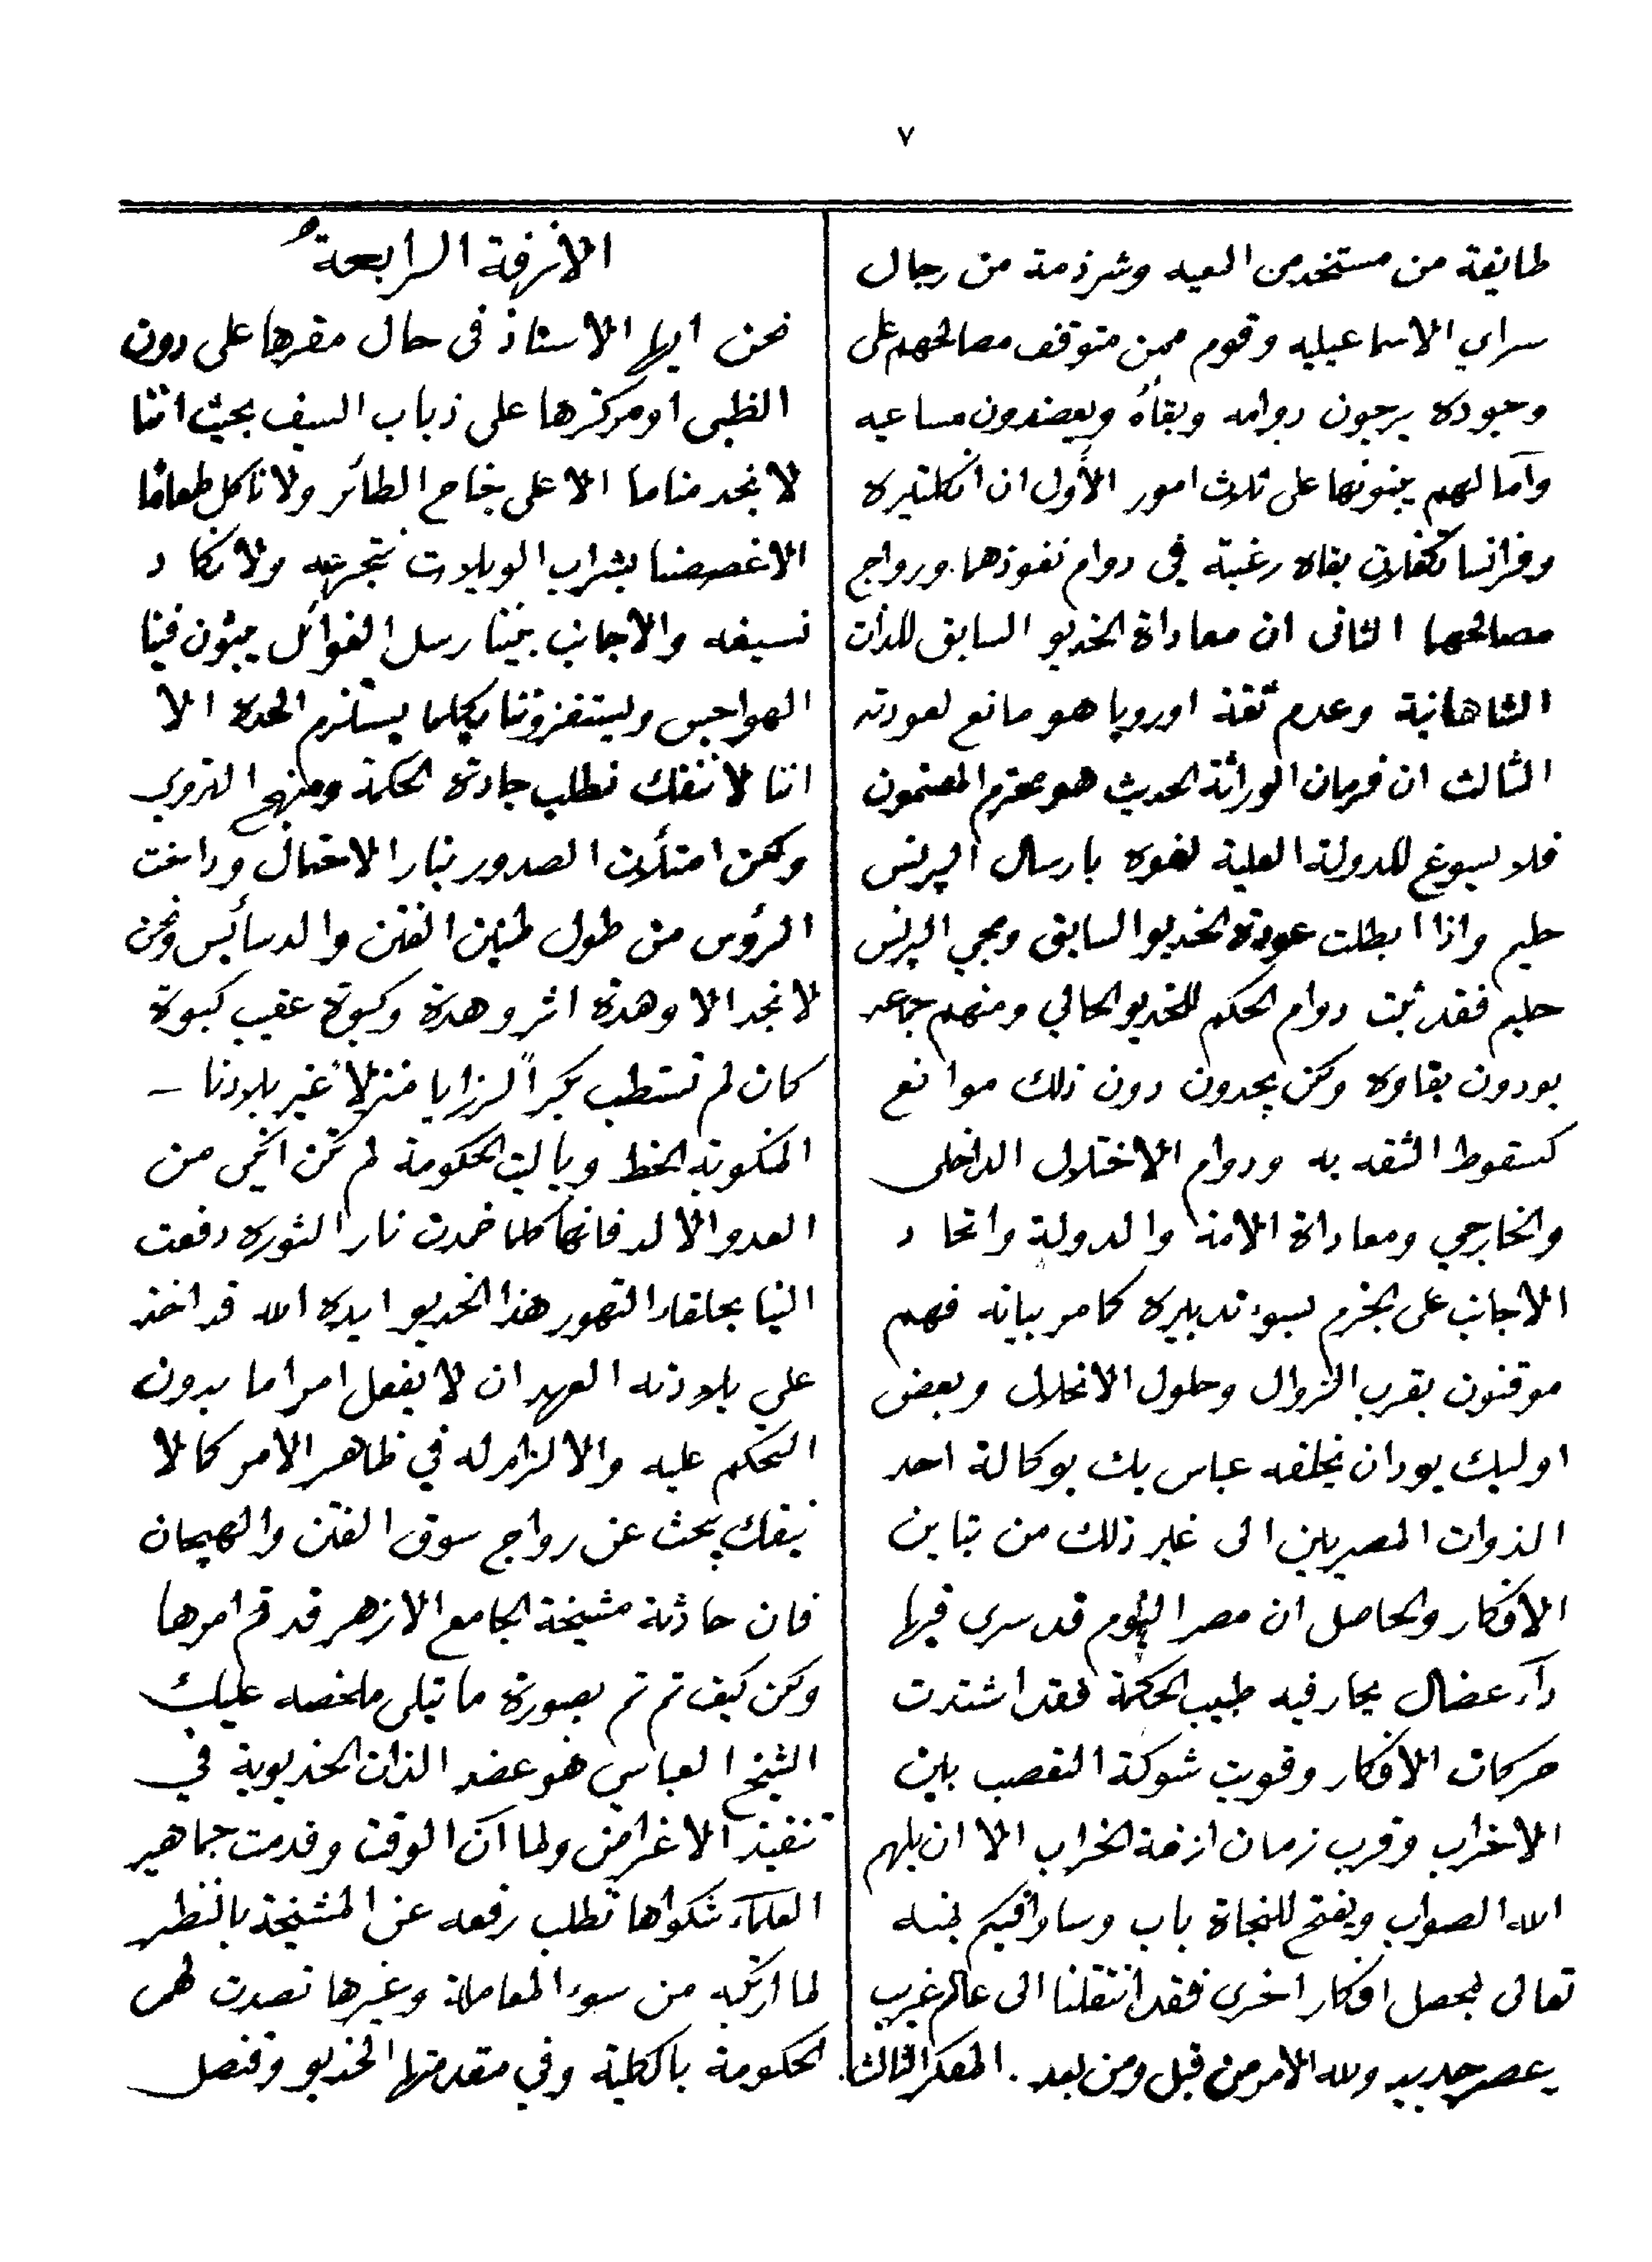 ٧
طايفة من مستخدمن المعيه وشرذمة من رجال
سراي الاسماعيليه وقوم ممن متوقف مصالحهم على
وجوده يرجون دوامه وبقاءُه ويعضدون مساعيه
وآمالهم يبنونها على ثلاث امور الأول ان انكلتيره
وفرانسا تكفلان بقاه رغبة في دوام نفوذهما ورواج
مصالحهما الثانى ان معاداة الخديو السابق للذات
الشاهانية وعدم ثقة اوروپا هو مانع لعودته
الثالث ان فرمان الوراثة الحديث هو محترم المضمون
فلا يسوغ للدولة العلية لغوه بارسال البرنس
حليم واذا ابطلت عودة الخديو السابق ومجي البرنس
حليم فقد ثبت دوام الحكم للخديو الحالي ومنهم جماعه
يودون بقاوه ولكن يجدون دون ذلك موانع
كسقوط الثقه به ودوام الاختلال الداخلى
والخارجي ومعاداة الامة والدولة واتحاد
الاجانب على الجزم بسوء تدبيره كما مر بيانه فهم
موقنون بقرب الزوال وحلول الانحلال وبعض
اوليك يودان يخلفه عباس بك بوكالة احد
الذوات المصريين الى غير ذلك من تباين
الافكار والحاصل ان مصر اليوم قد سرى فيها
دآء عضال يحار فيه طبيب الحكمة فقد اشتدت
حركات الافكار وقويت شوكة التعصب بين
الاحزاب وقرب زمان ازفة الخراب الا ان يلهم
الله الصواب ويفتح للنجاة باب وساوافيكم بمنه
تعالى بمحصل افكار اخرى فقد انتقلنا الى عالم غريب
وعصر جديد ولله الامر من قبل ومن بعد . المفكر الثالث .
الازفة الرابعة
نحن ايها الاستاذ فى حال مقرها على دون
الظبى او مركزها على ذباب السيف بحيث اننا
لا نجد مناما الا على جناح الطائر ولا ناكل طعامًا
الا غصصنا بشراب الويلات نتجرعه ولا نكاد
نسيغه والاجانب بيننا رسل الغوائل يبثون فينا
الهواجس ويستفزوننا بكلما يستلزم الحدة الا
اننا لا ننفك نطلب جادة الحكمة ومنهج التروي
ولكن امتلأت الصدور بنار الاحتمال وداخت
الرؤس من طول طنين الفتن والدسأيس ونحن
لا نجد الا وهدة اثر وهدة وكبوة عقيب كبوة
كان لم تستطب بكرُ الرزايا منزلاً غير بلادنا —
المنكوبة الحظ وياليت الحكومة لم تكن انكى من
العدو الالد فانها كلما خمدت نار الثوره دفعت
الينا بحلقاء التهور هذا الخديو ايده الله قد اخذ
على بلادنه العهد ان لا يفعل امرا ما بدون
التحكم عليه والالزام له في ظاهر الامر كما لا
ينفك يبحث عن رواج سوق الفتن والهيجان
فان حادثة مشيخة الجامع الازهر قد تم امرها
ولكن كيف تم تم بصورة ما تبلى ملخصه عليك
الشيخ العباسي هو عضد الذات الخديوية في
تنفيذ الاغراض ولما آن الوقت وقدمت جماهير
العلمآء شكواها تطلب رفعه عن المشيخة بالنظر
لما ارتكبه من سوء المعاملة وغيرها تصدت لهم
الحكومة بالكلية وفي مقدمتها الخديو وقنصل